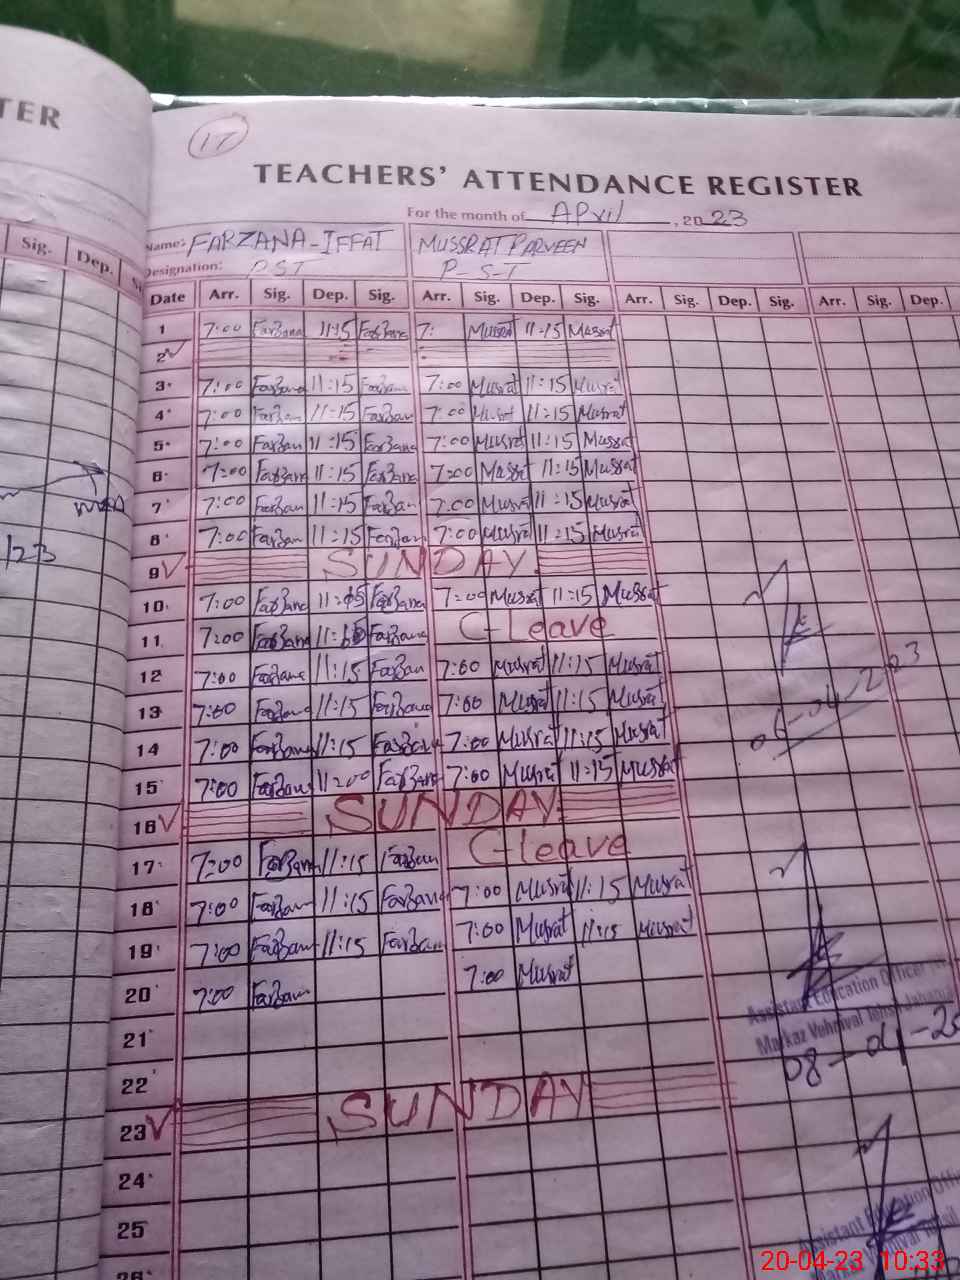 TER
17
TEACHERS' ATTENDANCE REGISTER
For the month of APril, 2023
Name: FARZANA-IFFAT MUSSRAT PARVEEN
Designation: PST P-S-T
Sig. Dep.
Date Arr. Sig. Dep. Sig. Arr. Sig. Dep. Sig. Arr. Sig. Dep. Sig. Arr. Sig. Dep.
1 7:00 Farzana 11:15 Farzana 7: Musrat 11:15 Musrat
2
3 7:00 Farzana 11:15 Farzana 7:00 Musrat 11:15 Musrat
4 7:00 Farzan 11:15 Farzan 7:00 Musrat 11:15 Musrat
5 7:00 Farzan 11:15 Farzana 7:00 Musrat 11:15 Mussat
6 7:00 Farzana 11:15 Farzana 7:00 Mussat 11:15 Musrat
7 7:00 Farzan 11:15 Farzan 7:00 Musrat 11:15 Musrat
8 7:00 Farzan 11:15 Farzan 7:00 Musrat 11:15 Musrat
9 SUNDAY
10 7:00 Farzana 11:15 Farzana 7:00 Musrat 11:15 Mussat
11 7:00 Farzana Farzana C-Leave
12 7:00 Farzana 11:15 Farzan 7:00 Musrat 11:15 Musrat
13 7:00 Farzana 11:15 Farzana 7:00 Musrat 11:15 Musrat
14 7:00 Farzana 11:15 Farzana 7:00 Musrat 11:15 Musrat
15 7:00 Farzana 11:00 Farzana 7:00 Musrat 11:15 Mussat
06-04/2023
16 SUNDAY
17 7:00 Farzana 11:15 Farzan C-leave
18 7:00 Farzan 11:15 Farzana 7:00 Musrat 11:15 Musrat
19 7:00 Farzan 11:15 Farzan 7:00 Musrat 11:15 Musrat
20 7:00 Farzan 7:00 Musrat
Assistant Education Officer
Markaz Vehnival Tehsil
08-04-23
21
22
23 SUNDAY
24
25
26
Assistant Education
Markaz
20-04-23 10:33